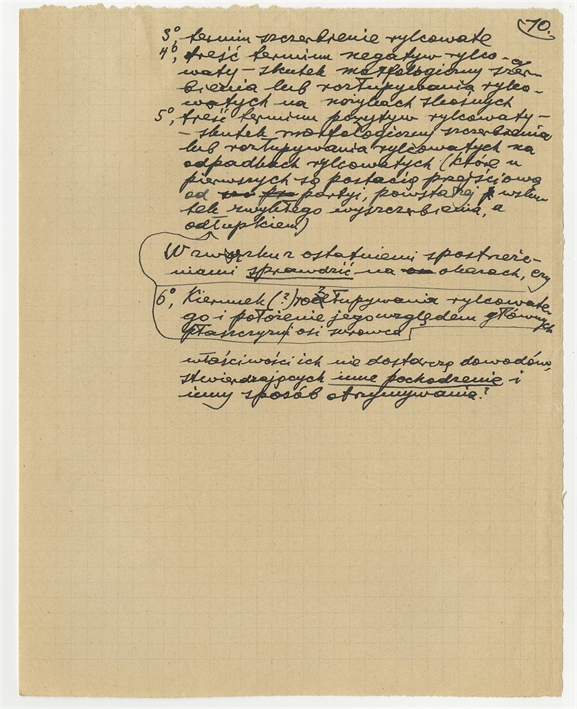 10.
3°, termin szczerbienie rylcowate
4°, treść terminu negatyw rylco-
waty - skutek morfologiczny szczer-
bienia lub rozłupywania rylco-
watych na nożykach skośnych
5°, treść terminu pozytyw rylcowaty -
- skutek morfologiczny szczerbienia
lub rozłupywania rylcowatych na
odpadkach rylcowatych (które u
pierwszych są postacią przejściową
od partyi, powstałej wsku
tek zwykłego wyszczerbienia, a
odłupkiem)
W związku z ostatniemi spostrzeże-
niami sprawdzić na okazach, czy
6°, Kierunek (?) rozłupywania rylcowate-
go i położenie jego względem głównych
płaszczyzn i osi surowca
właściwości ich nie dostarczą dowodów,
stwierdzających inne pochodzenie i
inny sposób otrzymywania?